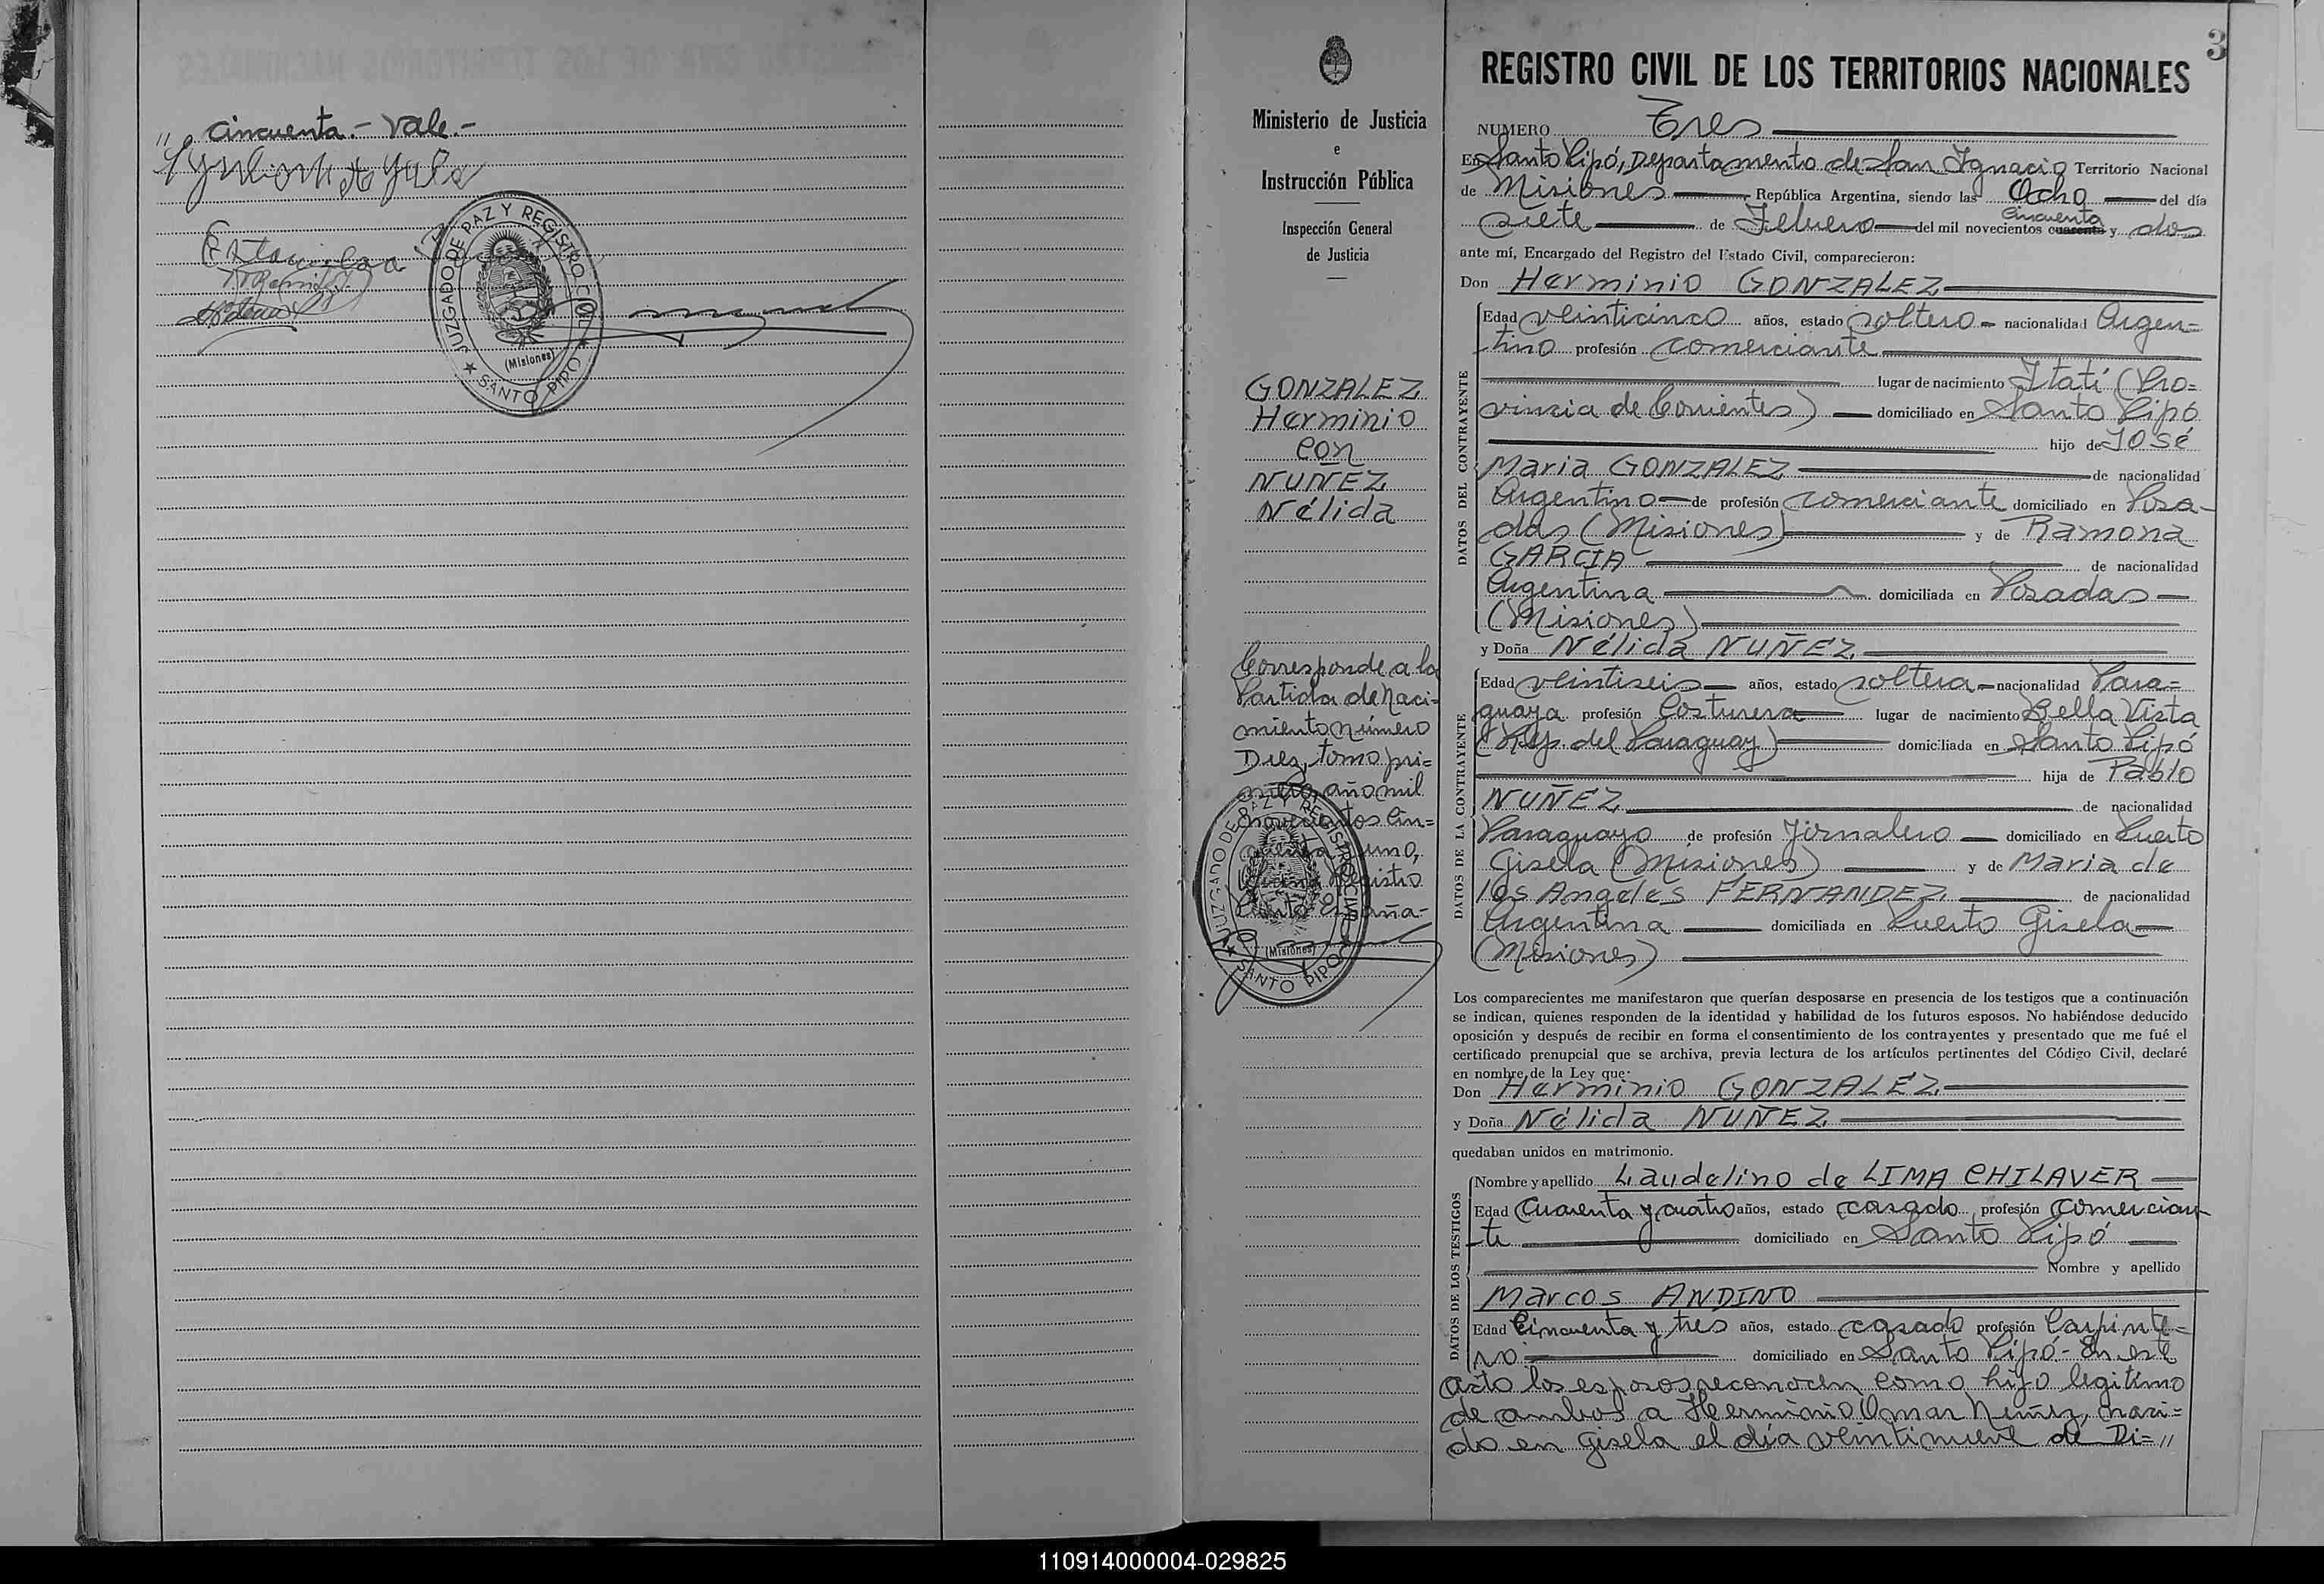 " cincuenta.- Vale.-
JUZGADO DE PAZ Y REGISTRO CIVIL
(Misiones)
★ SANTO PIPO ★
3
Ministerio de Justicia
e
Instrucción Pública
Inspección General
de Justicia
GONZALEZ
Herminio
con
NUÑEZ
Nélida
Corresponde a la
Partida de naci=
miento número
Diez, tomo pri=
mero año mil
novecientos cin=
cuenta uno,
Registro
JUZGADO DE PAZ Y REGISTRO CIVIL
(Misiones)
★ SANTO PIPO ★
REGISTRO CIVIL DE LOS TERRITORIOS NACIONALES
NUMERO Tres
En Santo Pipó, Departamento de San Ignacio Territorio Nacional
de Misiones República Argentina, siendo las Ocho del día
cincuenta
siete de Febrero del mil novecientos cuarenta y dos
ante mí, Encargado del Registro del Estado Civil, comparecieron:
Don Herminio GONZALEZ
DATOS DEL CONTRAYENTE
Edad veinticinco años, estado soltero - nacionalidad Argen=
tino profesión comerciante
lugar de nacimiento Itatí (Pro=
vincia de Corrientes) domiciliado en Santo Pipó
hijo de José
Maria GONZALEZ de nacionalidad
Argentino de profesión comerciante domiciliado en Posa-
das (Misiones) y de Ramona
GARCIA de nacionalidad
Argentina domiciliada en Posadas
(Misiones)
y Doña Nélida NUÑEZ
DATOS DE LA CONTRAYENTE
Edad veintiseis años, estado soltera - nacionalidad Para=
guaya profesión Costurera lugar de nacimiento Bella Vista
(Rep. del Paraguay) domiciliada en Santo Pipó
hija de Pablo
NUÑEZ de nacionalidad
Paraguayo de profesión Jornalero domiciliado en Puerto
Gisela (Misiones) y de Maria de
los Angeles FERNANDEZ de nacionalidad
Argentina domiciliada en Puerto Gisela
(Misiones)
Los comparecientes me manifestaron que querían desposarse en presencia de los testigos que a continuación
se indican, quienes responden de la identidad y habilidad de los futuros esposos. No habiéndose deducido
oposición y después de recibir en forma el consentimiento de los contrayentes y presentado que me fué el
certificado prenupcial que se archiva, previa lectura de los artículos pertinentes del Código Civil, declaré
en nombre de la Ley que:
Don Herminio GONZALEZ
y Doña Nélida NUÑEZ
quedaban unidos en matrimonio.
DATOS DE LOS TESTIGOS
Nombre y apellido Laudelino de LIMA CHILAVER
Edad Cuarenta y cuatro años, estado casado profesión comercian-
te domiciliado en Santo Pipó
Nombre y apellido
Marcos ANDINO
Edad Cincuenta y tres años, estado casado profesión Carpinte=
ro domiciliado en Santo Pipó- En este
acto los esposos reconocen como hijo legítimo
de ambos a Herminio Omar Nuñez, naci=
do en Gisela el día veintinueve de Di= "
110914000004-029825